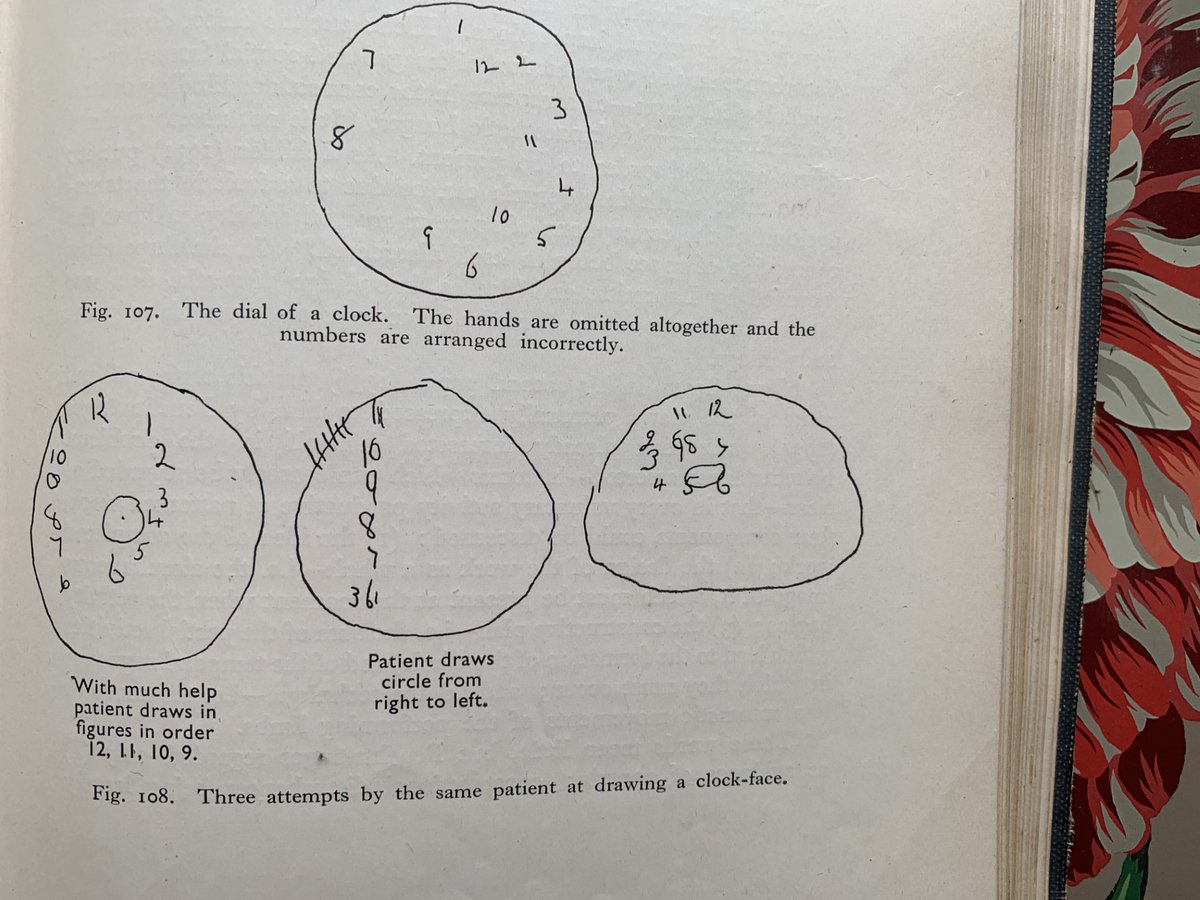 1
7 12 2
3
8 11
4
10
9 5
6
Fig. 107. The dial of a clock. The hands are omitted altogether and the
numbers are arranged incorrectly.
12
11 1
10 2
3
8 4
7 5
6 6
11
10
9
8
7
36
11 12
2 98
3
4 5 6
With much help
patient draws in
figures in order
12, 11, 10, 9.
Patient draws
circle from
right to left.
Fig. 108. Three attempts by the same patient at drawing a clock-face.